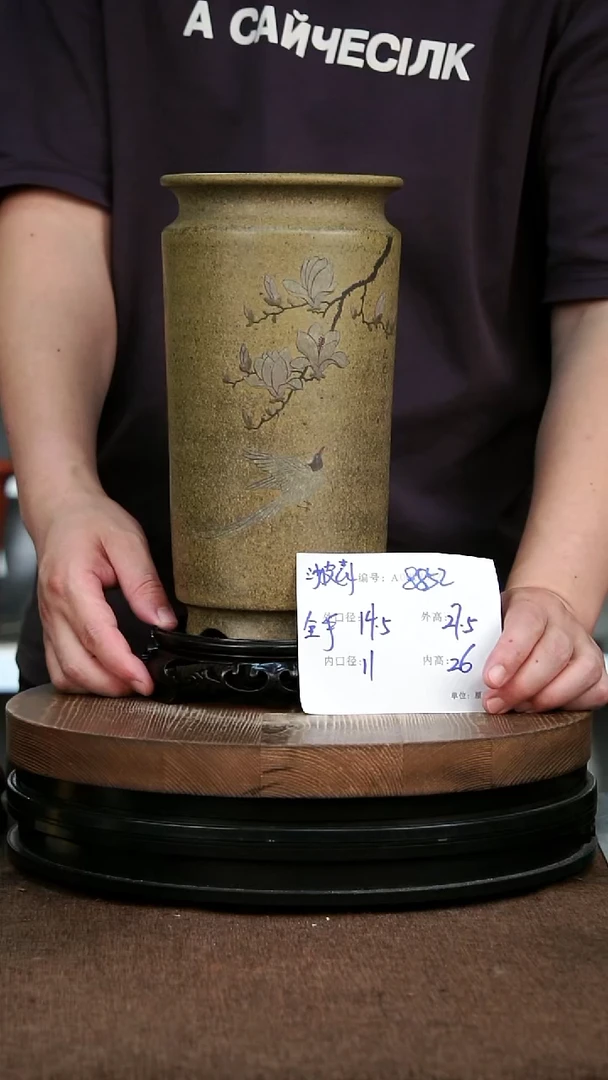 А САЙЧЕСІЛК
沙皮料 编号：A 8852
外口径：14.5 外高：27.5
全手
内口径：11 内高：26
单位：厘